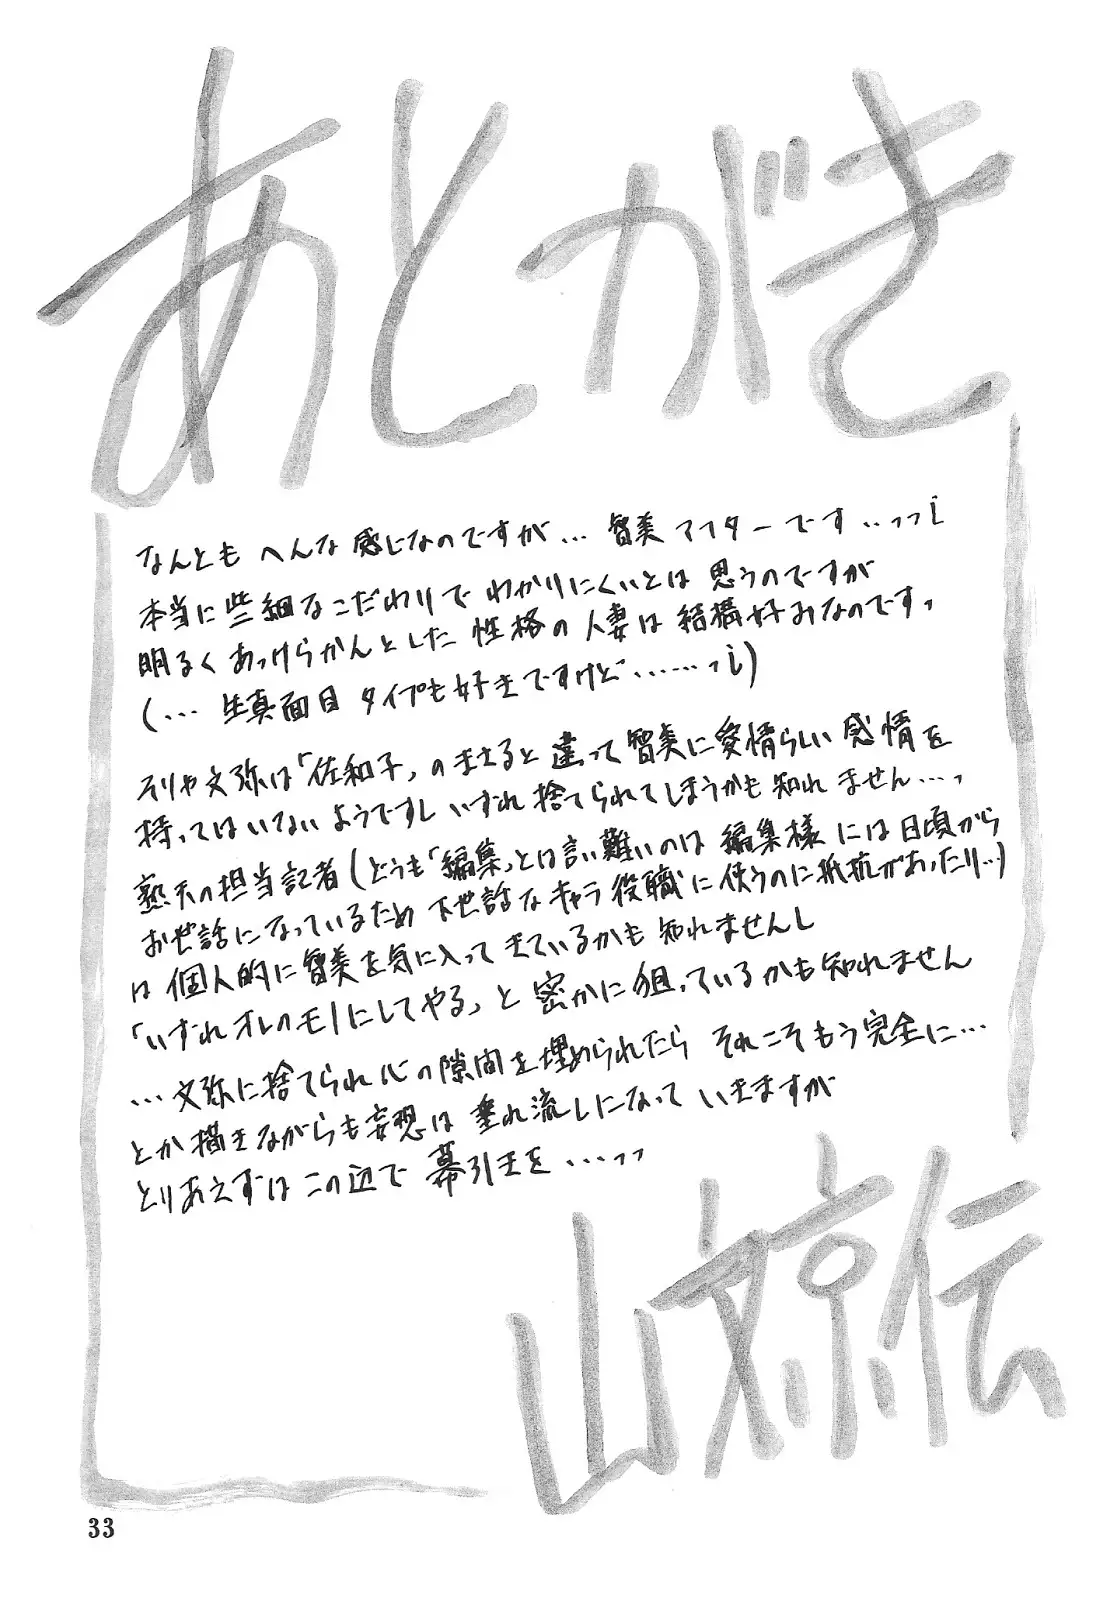 あとがき
なんとも へんな 感じなのですが… 智美 アフターです…っっ¡
本当に些細なこだわりで わかりにくいとは 思うのですが
明るく あっけらかんとした 性格の 人妻は 結構好みなのです、
(… 生真面目 タイプも好きですけど……っ¡)
そりゃ文弥は「佐和子」のまさると 違って 智美に愛情らしい 感情を
持ってはいないようですし いずれ 捨てられてしまうかも 知れません…、
熟天の担当記者(どうも「編集」とは言い難いのは 編集様 には 日頃から
お世話になっているため 下世話な キャラ 役職に 使うのに 抵抗があったり…)
は 個人的に 智美を気に入って きているかも 知れませんし
「いずれ オレのモノにしてやる」と 密かに 狙っているかも知れません
…文弥に捨てられ 心の隙間を埋められたら それこそもう完全に…
とか描きながらも妄想は 垂れ流しになって いきますが
とりあえずは この辺で 幕引きを…っっ
山文京伝
33